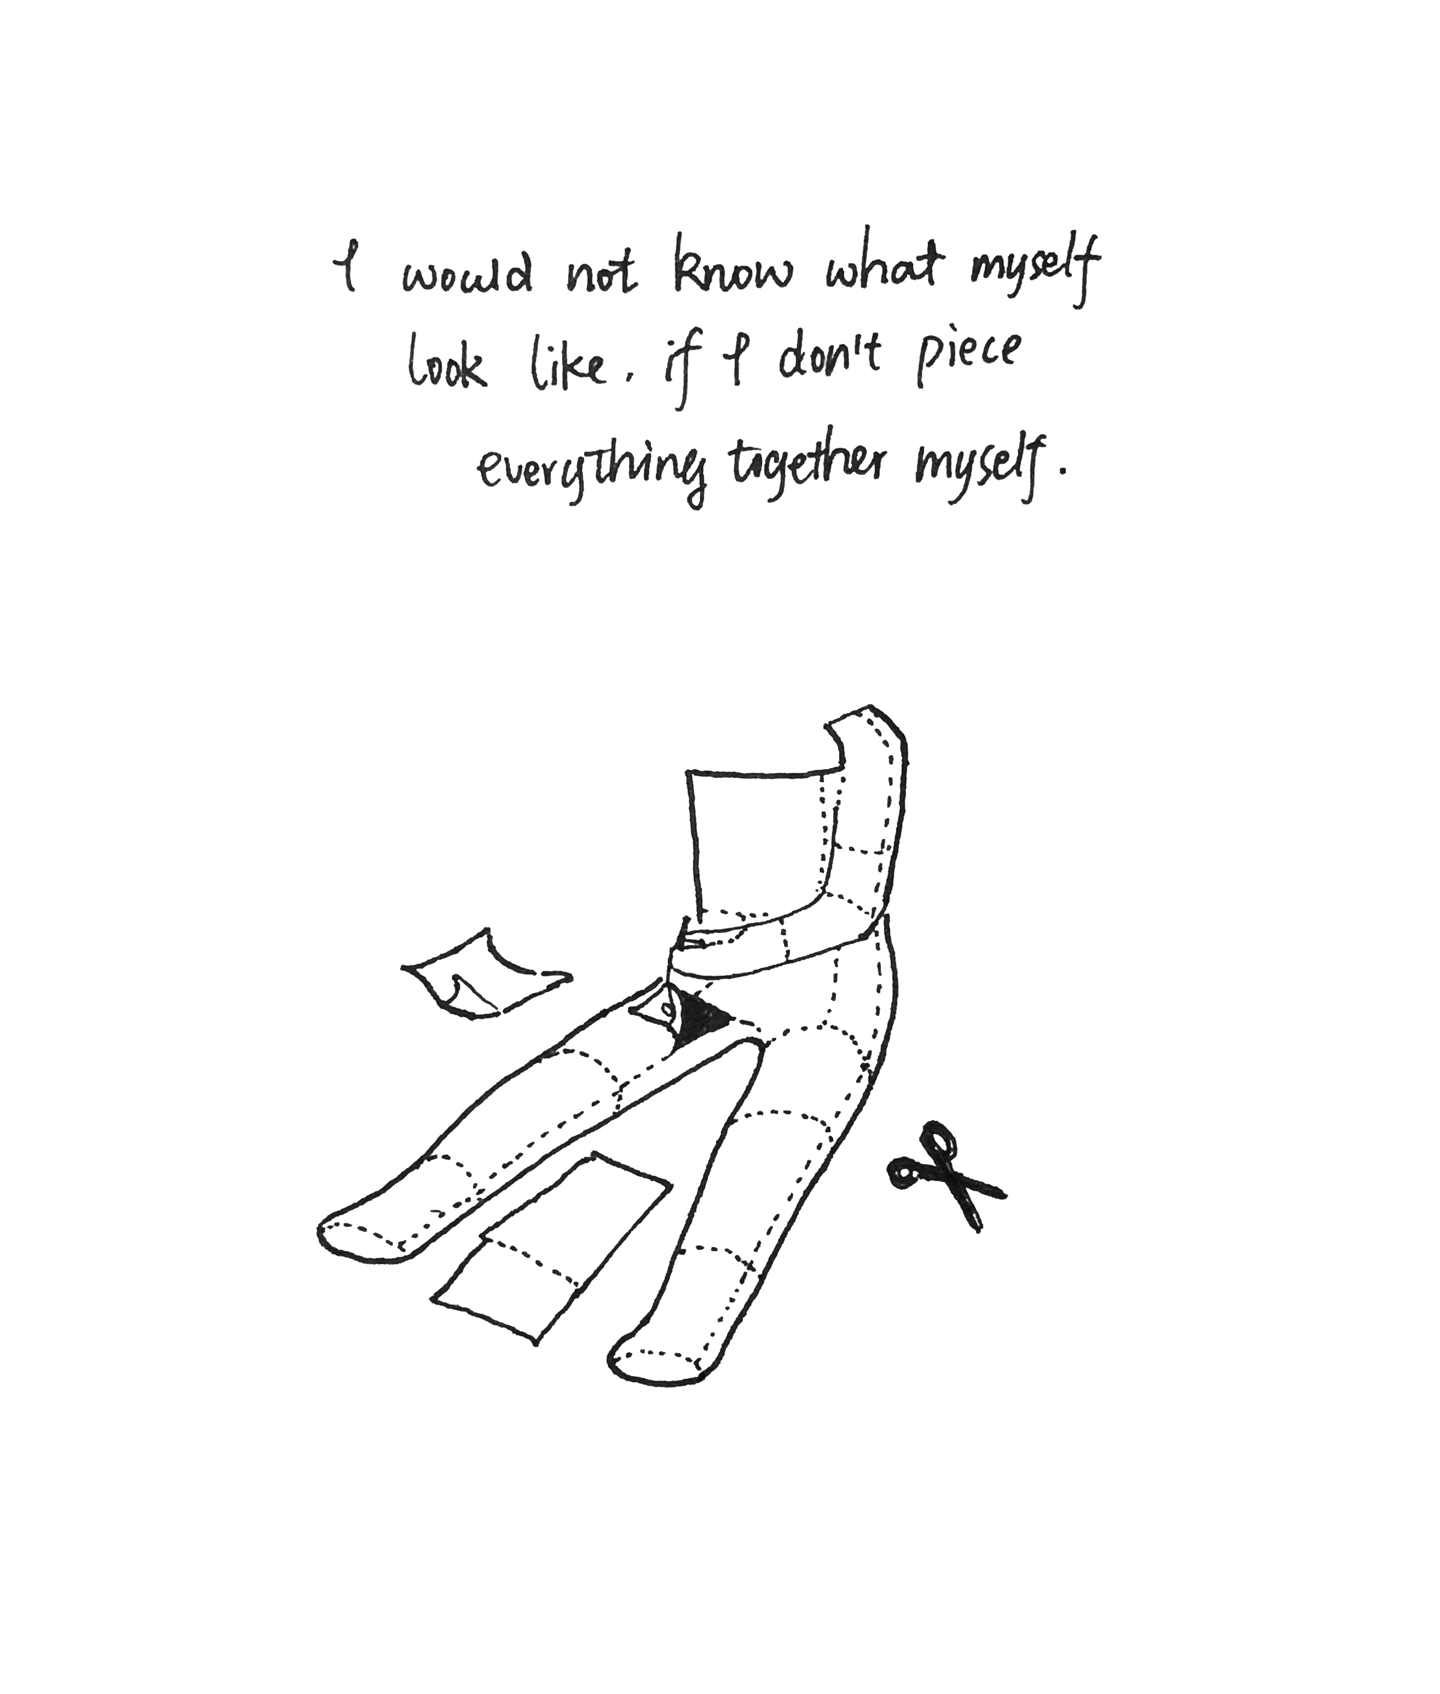 I would not know what myself
look like. if I don't piece
everything together myself.